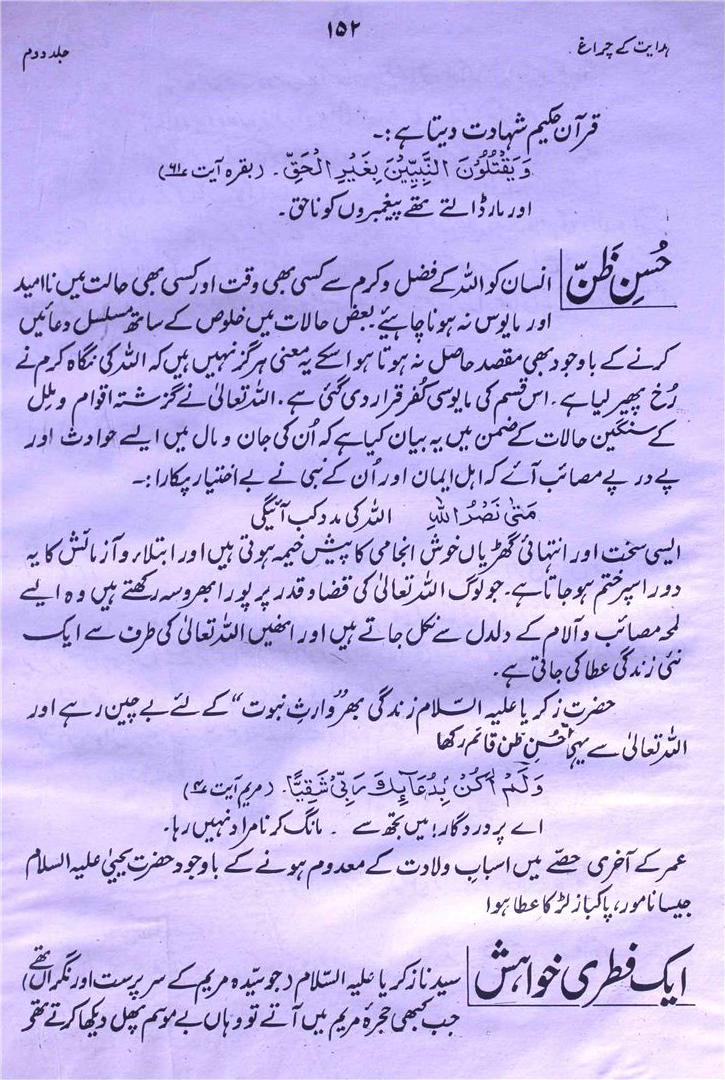 ۱۵۲
ہدایت کے چراغ
جلد دوم
قرآن حکیم شہادت دیتا ہے :۔
وَيَقْتُلُوْنَ النَّبِيِّيْنَ بِغَيْرِ الْحَقِّ ۔ (بقرہ آیت ۶۱)
اور مار ڈالتے تھے پیغمبروں کو ناحق۔
حُسنِ ظَنّ
انسان کو اللہ کے فضل و کرم سے کسی بھی وقت اور کسی بھی حالت میں نا امید
اور مایوس نہ ہونا چاہیئے بعض حالات میں خلوص کے ساتھ مسلسل دعائیں
کرنے کے باوجود بھی مقصد حاصل نہ ہوتا ہو اسکے یہ معنی ہرگز نہیں ہیں کہ اللہ کی نگاہ کرم نے
رُخ پھیر لیا ہے۔ اس قسم کی مایوسی کُفر قرار دی گئی ہے۔ اللہ تعالیٰ نے گزشتہ اقوام و ملل
کے سنگین حالات کے ضمن میں یہ بیان کیا ہے کہ اُن کی جان و مال میں ایسے حوادث اور
پے در پے مصائب آئے کہ اہل ایمان اور اُن کے نبی نے بے اختیار پکارا :۔
مَتٰی نَصْرُ اللّٰہِ اللہ کی مدد کب آئیگی
ایسی سخت اور انتہائی گھڑیاں خوش انجامی کا پیش خیمہ ہوتی ہیں اور ابتلاء و آزمائش کا یہ
دور اسپر ختم ہو جاتا ہے۔ جو لوگ اللہ تعالیٰ کی قضا و قدر پر پورا بھروسہ رکھتے ہیں وہ ایسے
لمحہ مصائب و آلام کے دلدل سے نکل جاتے ہیں اور انھیں اللہ تعالیٰ کی طرف سے ایک
نئی زندگی عطا کی جاتی ہے۔
حضرت زکریا علیہ السّلام زندگی بھر "وارثِ نبوت" کے لئے بے چین رہے اور
اللہ تعالیٰ سے یہی حُسنِ ظن قائم رکھا
وَلَمْ اَكُنْ بِدُعَآئِكَ رَبِّ شَقِيًّا ۔ (مریم آیت ۴)
اے پروردگار! میں تجھ سے ۔ مانگ کر نامراد نہیں رہا۔
عمر کے آخری حصّے میں اسباب ولادت کے معدوم ہونے کے باوجود حضرت یحییٰ علیہ السلام
جیسا نامور، پاکباز لڑکا عطا ہوا
ایک فطری خواہش
سیدنا زکریا علیہ السّلام (جو سیّدہ مریم کے سرپرست اور نگراں تھے)
جب کبھی حجرۂ مریم میں آتے تو وہاں بے موسم پھل دیکھا کرتے تھے